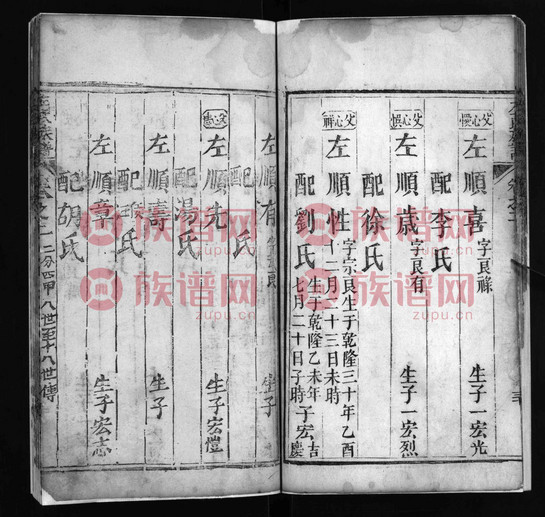 父心慢
左順喜 字艮祿 生子一宏光
配李氏
父心悮
左順歳 字艮有 生子一宏烈
配徐氏
父心祥
左順性 字宗艮生于乾隆三十年乙酉
十一月二十三日未時 子宏吉
配劉氏 生于乾隆乙未年
七月二十日子時 慶
左順有 生子
配 氏
左順先 生子宏愷
配湯氏
左順壽 生子
配 氏
左順章 生子宏志
配胡氏
左氏族譜 卷之二 二分四甲 八世至十八世傳
族谱网
zupu.cn
族谱网
zupu.cn
族谱网
zupu.cn
族谱网
zupu.cn